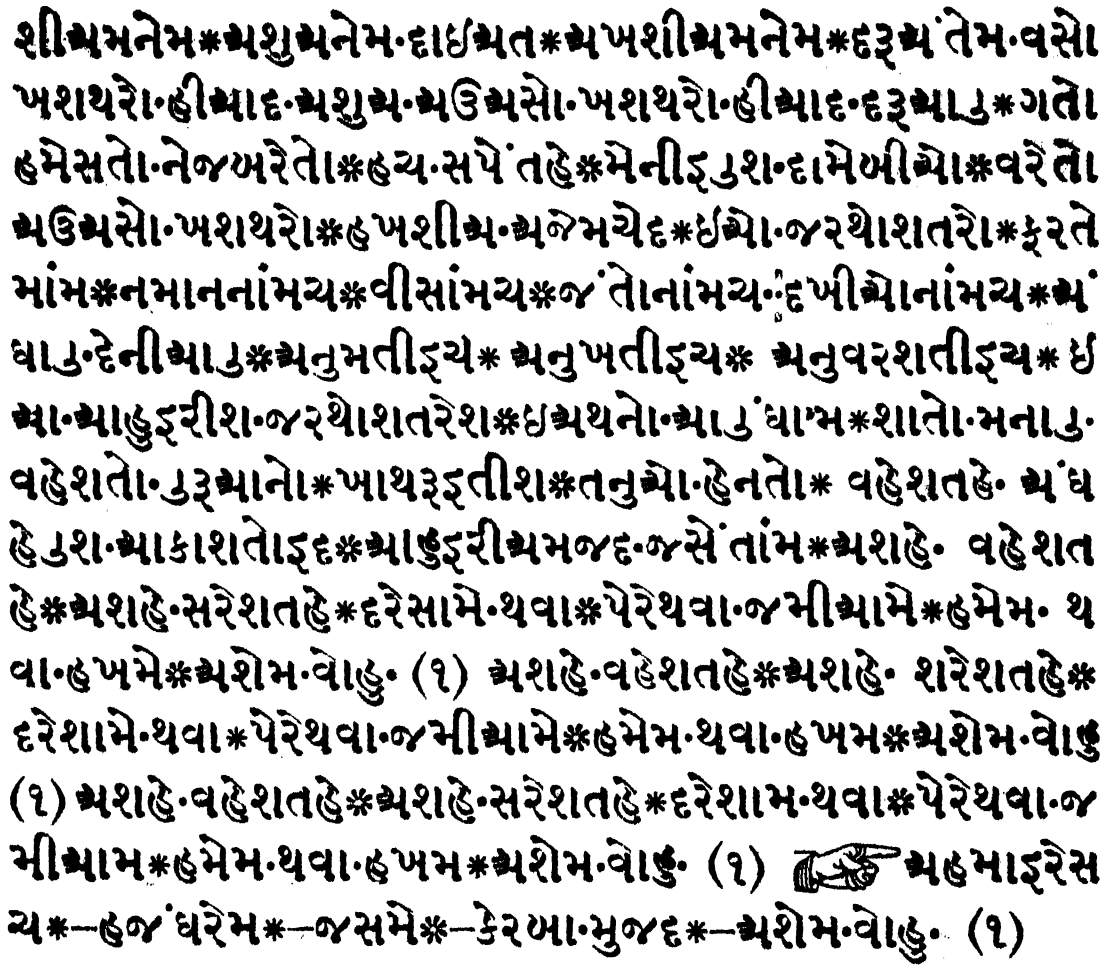 શીઅમનેમ*અશુઅનેમ·દાઇઅત*અખશીઅમનેમ*દરૂઅં તેમ·વસો
ખશથરો·હીઆદ·અશુઅ·અઉઅસો·ખશથરો·હીઆદ·દરૂઆ઼ડ*ગતો
હમેસતો·નેજબરૈતો*હચ·સપેં તહે*મેનીઇઉશ·દામેબીઓ*વરૈતો
અઉઅસો·ખશથરો*હખશીઅ·અજેમચેદ*ઇઓ·જરથોશતરો*ફરતે
માંમ*નમાનનાંમચ*વીસાંમચ*જં તોનાંમચ·દખીઓનાંમચ*અં
ઘાઉ·દેનીઆઉ*અનુમતીઇચે* અનુખતીઇચ* અનુવરશતીઇચ* ઇ
આ·આહુઇરીશ·જરથોશતરેશ*ઇઅથનો·આઉં ઘામ*શાતો·મનાઉ·
વહેશતો·ઉરૂઆનો*ખાથરૂઇતીશ*તનુઓ·હેનતો* વહેશતહે· અં ઘ
હેઉશ·આકાશતોઇદ*આહુઇરીઅમજદ·જસેં તાંમ*અશહે· વહેશત
હે*અશહે·સરેશતહે*દરેસામે·થવા*પેરેથવા·જમીઆમે*હમેમ· થ
વા·હખમે*અશેમ·વોહુ· (૧) અશહે·વહેશતહે*અશહે· શરેશતહે*
દરેશામે·થવા*પેરેથવા·જમીઆમે*હમેમ·થવા·હખમ*અશેમ·વોહુ
(૧) અશહે·વહેશતહે*અશહે·સરેશતહે*દરેશામ·થવા*પેરેથવા·જ
મીઆમ*હમેમ·થવા·હખમ*અશેમ·વોહુ· (૧) અહમાઇરેસ
ચ*—હજં ઘરેમ*—જસમે*—કેરબા·મુજદ*—અશેમ·વોહુ· (૧)